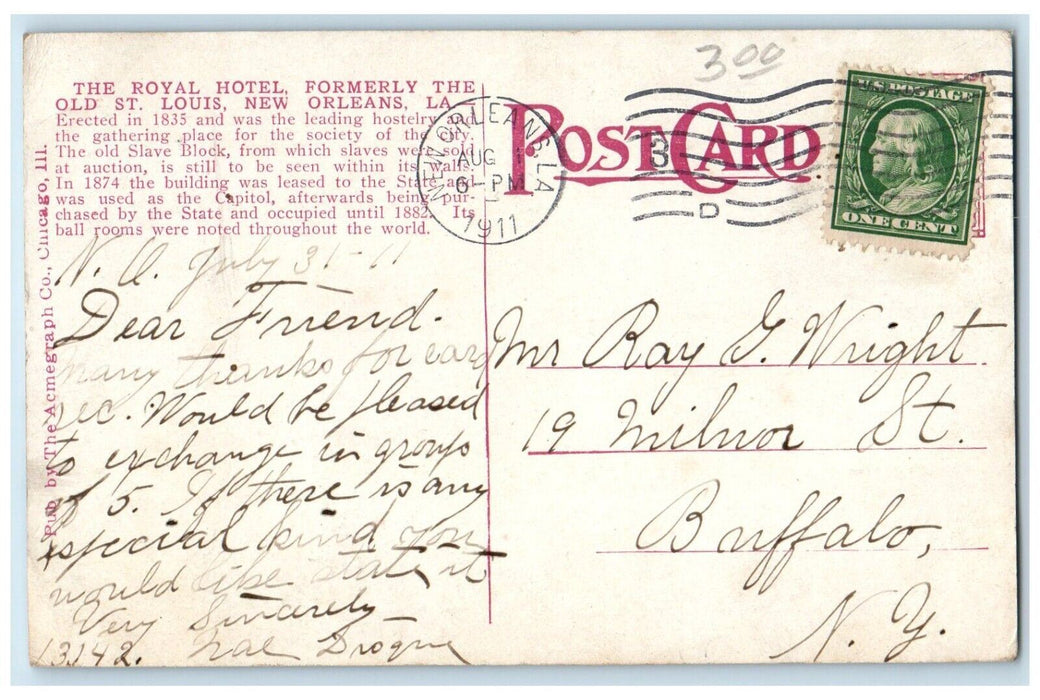 3.00
THE ROYAL HOTEL, FORMERLY THE
OLD ST. LOUIS, NEW ORLEANS, LA.
Erected in 1835 and was the leading hostelry and
the gathering place for the society of the city.
The old Slave Block, from which slaves were sold
at auction, is still to be seen within its walls.
In 1874 the building was leased to the State and
was used as the Capitol, afterwards being pur-
chased by the State and occupied until 1882. Its
ball rooms were noted throughout the world.
Pub. by The Acmegraph Co., Chicago, Ill.
POST CARD
NEW ORLEANS, LA
AUG 1
6- PM
1911
3
D
U.S. POSTAGE
ONE CENT
N. O. July 31-11
Dear Friend.
Many thanks for card
rec. Would be pleased
to exchange in groups
of 5. If there is any
especial kind you
would like state it
Very Sincerely
13142.
Mr Ray G. Wright.
19 Milnor St.
Buffalo,
N. Y.